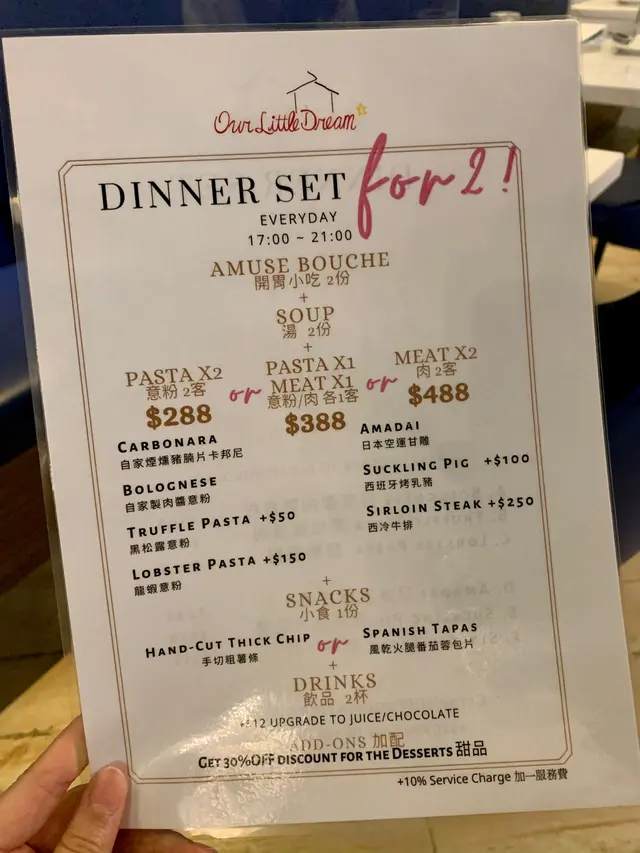 Our Little Dream
DINNER SET for 2!
EVERYDAY
17:00 ~ 21:00
AMUSE BOUCHE
開胃小吃 2份
+
SOUP
湯 2份
+
PASTA X2
意粉 2客
$288
or
PASTA X1
MEAT X1
意粉/肉 各1客
$388
or
MEAT X2
肉 2客
$488
CARBONARA
自家煙燻豬腩片卡邦尼
BOLOGNESE
自家製肉醬意粉
TRUFFLE PASTA +$50
黑松露意粉
LOBSTER PASTA +$150
龍蝦意粉
AMADAI
日本空運甘雕
SUCKLING PIG +$100
西班牙烤乳豬
SIRLOIN STEAK +$250
西冷牛排
+
SNACKS
小食 1份
HAND-CUT THICK CHIP
手切粗薯條
or
SPANISH TAPAS
風乾火腿番茄蓉包片
+
DRINKS
飲品 2杯
12 UPGRADE TO JUICE/CHOCOLATE
ADD-ONS 加配
GET 30%OFF DISCOUNT FOR THE DESSERTS 甜品
+10% Service Charge 加一服務費